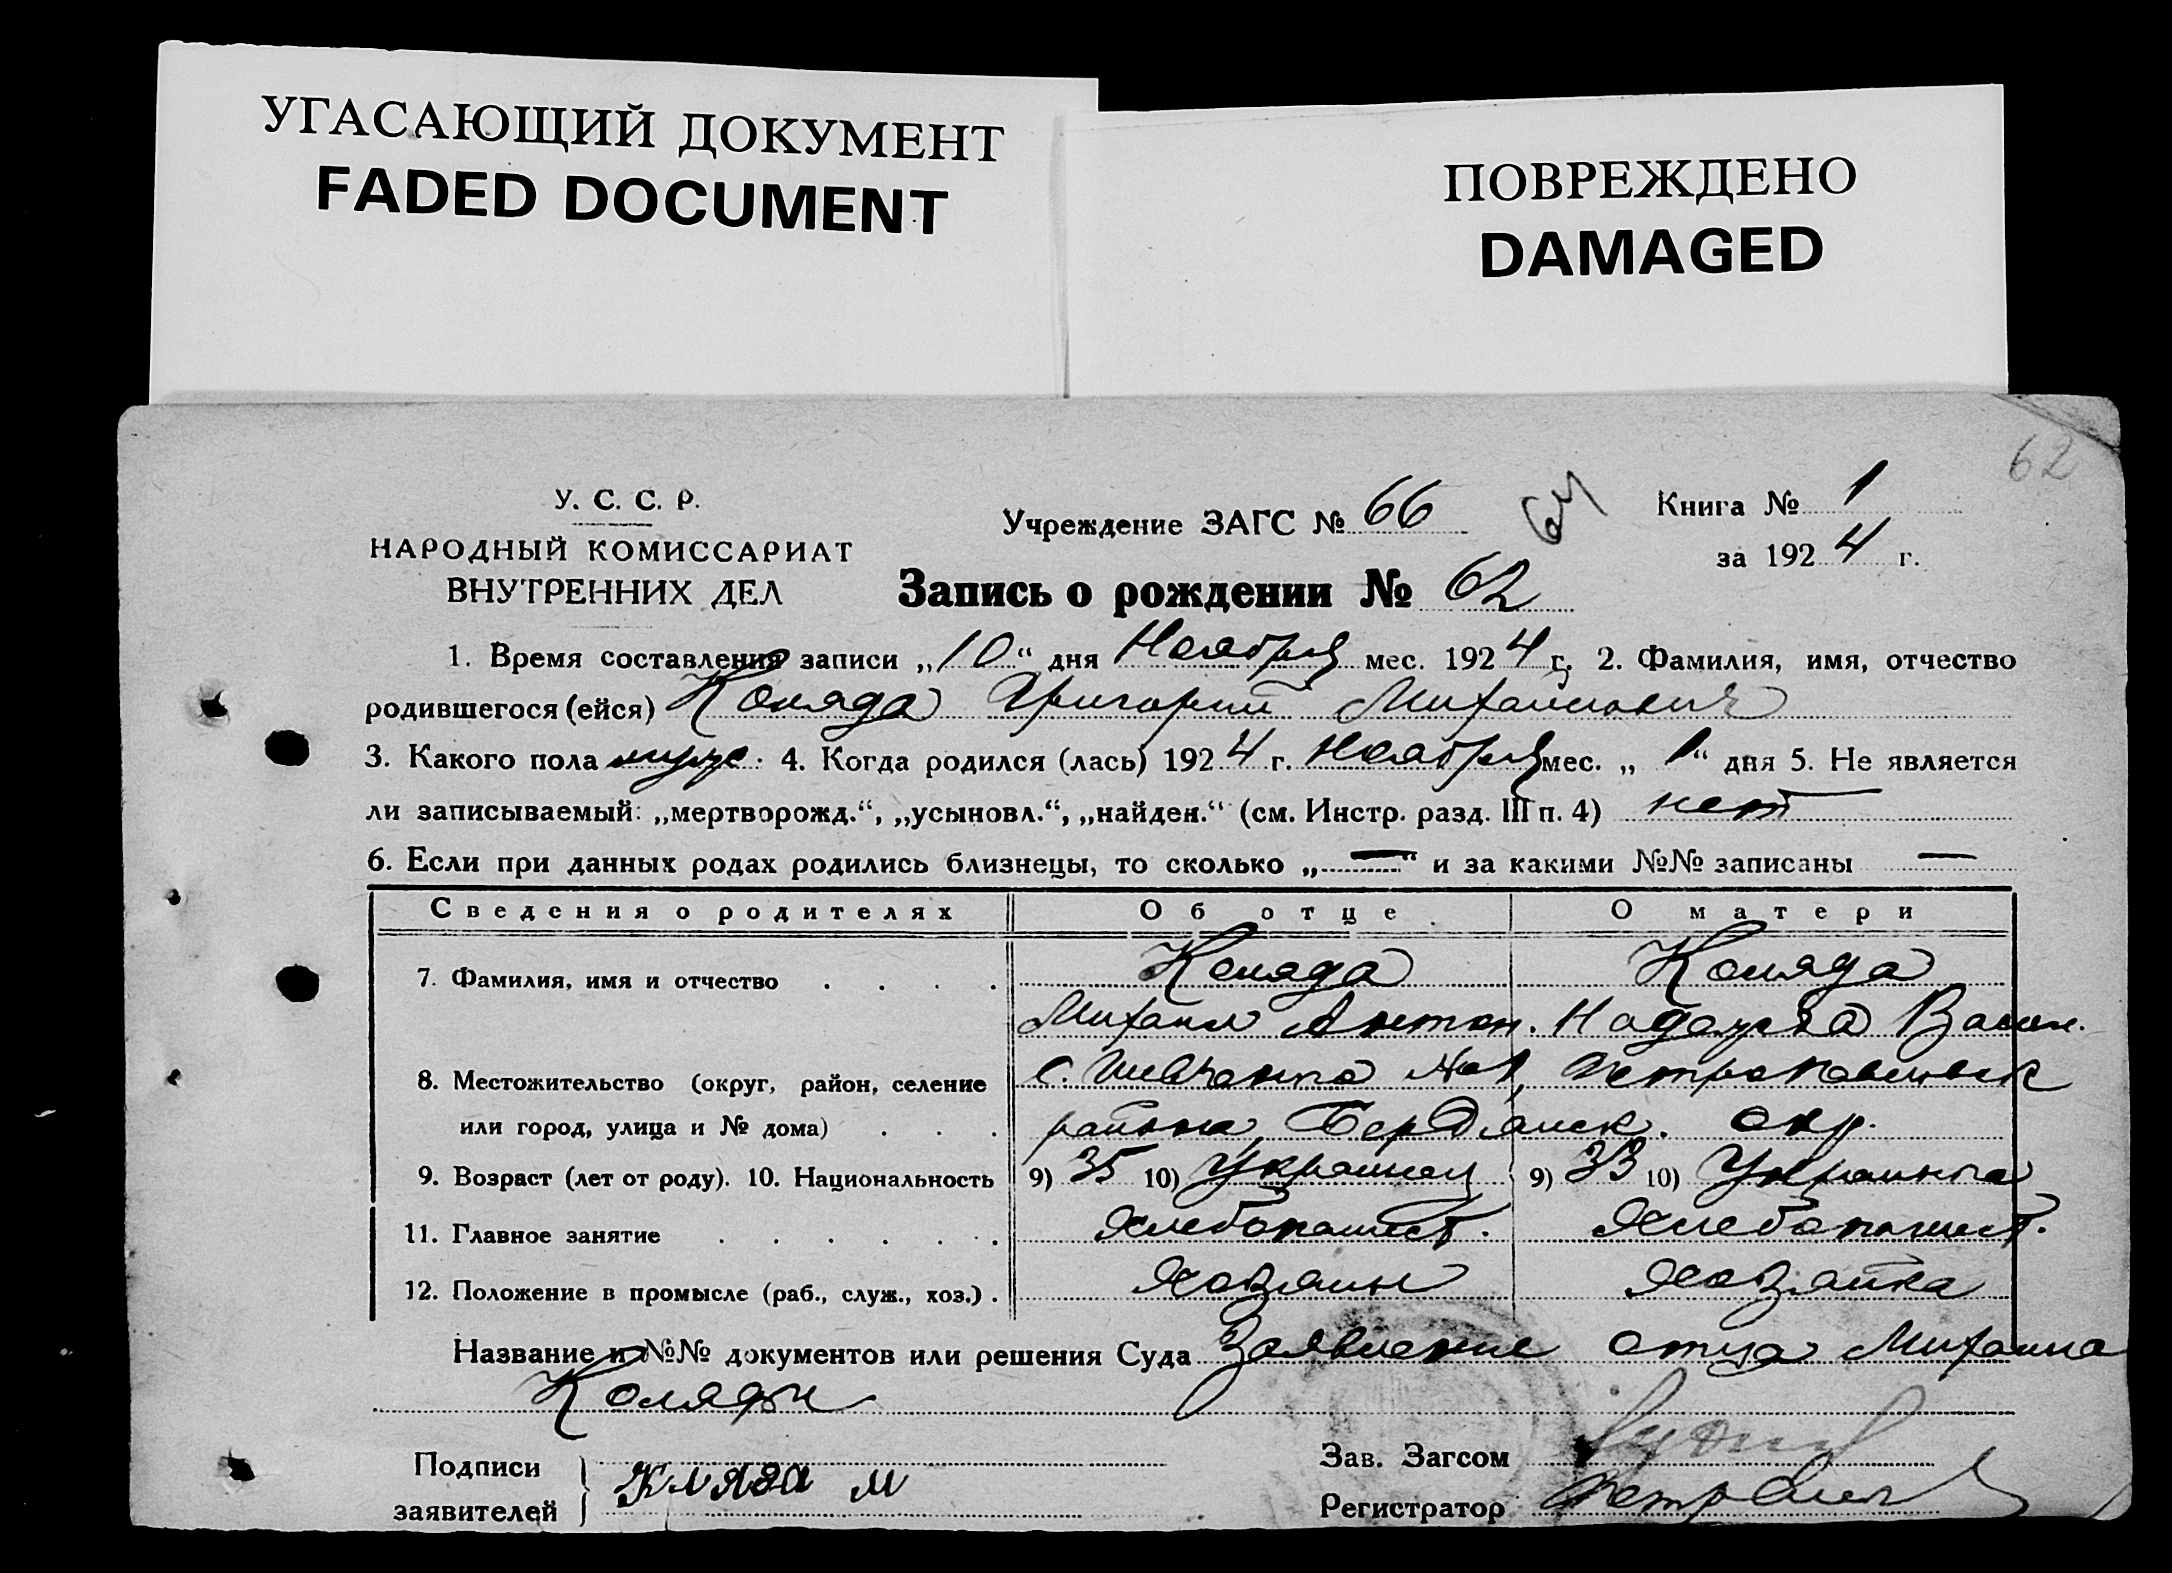 УГАСАЮЩИЙ ДОКУМЕНТ
FADED DOCUMENT
ПОВРЕЖДЕНО
DAMAGED
62
У. С. С. Р.
НАРОДНЫЙ КОМИССАРИАТ
ВНУТРЕННИХ ДЕЛ
Учреждение ЗАГС № 66
64
Книга № 1
за 1924 г.
Запись о рождении № 62
1. Время составления записи „10“ дня Ноября мес. 1924 г. 2. Фамилия, имя, отчество
родившегося (ейся) Коляда Григорий Михайлович
3. Какого пола мужс. 4. Когда родился (лась) 1924 г. Ноября мес. „1“ дня 5. Не является
ли записываемый: „мертворожд.“, „усыновл.“, „найден.“ (см. Инстр. разд. III п. 4) нет
6. Если при данных родах родились близнецы, то сколько „—“ и за какими №№ записаны —
Сведения о родителях Об отце О матери
7. Фамилия, имя и отчество . . . . Коляда Коляда
Михаил Антон. Надежда Васил.
8. Местожительство (округ, район, селение с. Шевченко №1, Петропавловск
или город, улица и № дома) . . . района Бердянск. окр.
9. Возраст (лет от роду). 10. Национальность 9) 35 10) Украинец 9) 33 10) Украинка
11. Главное занятие . . . . . . Хлебопашест. Хлебопашест.
12. Положение в промысле (раб., служ., хоз.) . Хозяин Хозяйка
Название и №№ документов или решения Суда Заявление отца Михаила
Коляды
Подписи
заявителей
Кляда М
Зав. Загсом
Регистратор